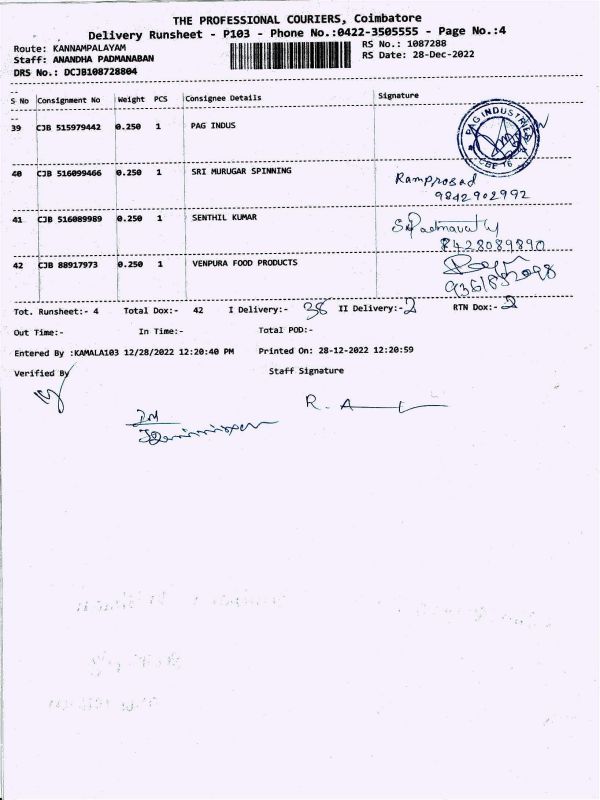 THE PROFESSIONAL COURIERS, Coimbatore
Delivery Runsheet - P103 - Phone No.:0422-3505555 - Page No.:4
Route: KANNAMPALAYAM
RS No.: 1087288
Staff: ANANDHA PADMANABAN
RS Date: 28-Dec-2022
DRS No.: DCJB108728804
S No Consignment No Weight PCS Consignee Details Signature
39 CJB 515979442 0.250 1 PAG INDUS
PAG INDUSTRIE
CBE 16
40 CJB 516099466 0.250 1 SRI MURUGAR SPINNING
Ramprasad
9842902992
41 CJB 516089989 0.250 1 SENTHIL KUMAR
8428089890
42 CJB 88917973 0.250 1 VENPURA FOOD PRODUCTS
Tot. Runsheet:- 4 Total Dox:- 42 I Delivery:- 38 II Delivery:- 2 RTN Dox:- 2
Out Time:- In Time:- Total POD:-
Entered By :KAMALA103 12/28/2022 12:20:40 PM Printed On: 28-12-2022 12:20:59
Verified By Staff Signature